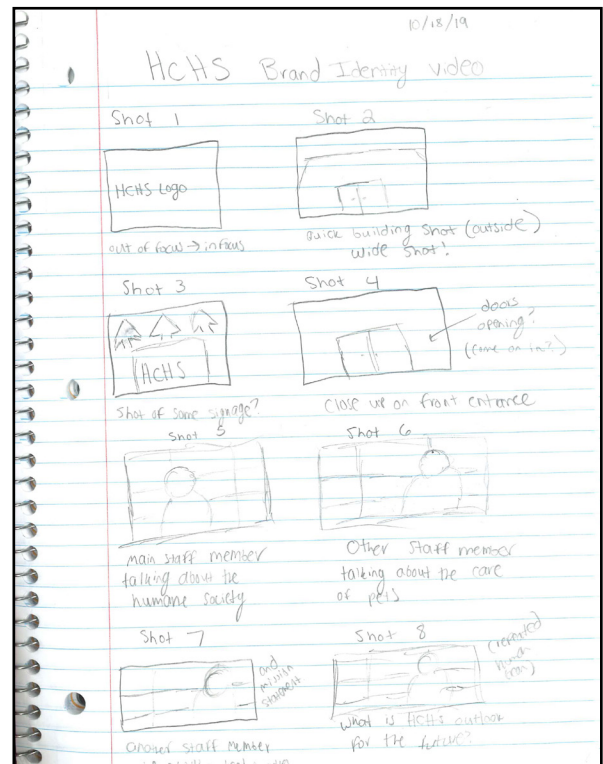 10/18/19
HCHS Brand Identity video
Shot 1
HCHS Logo
out of focus → in focus
Shot 2
Quick building shot (outside)
wide shot!
Shot 3
HCHS
Shot of some signage?
Shot 4
doors
opening?
(come on in?)
Close up on front entrance
Shot 5
Main staff member
talking about the
humane society
Shot 6
Other staff member
talking about the care
of pets
Shot 7
and
mission
statement
another staff member
Shot 8
(repeated
from)
What is HCHS outlook
for the future?